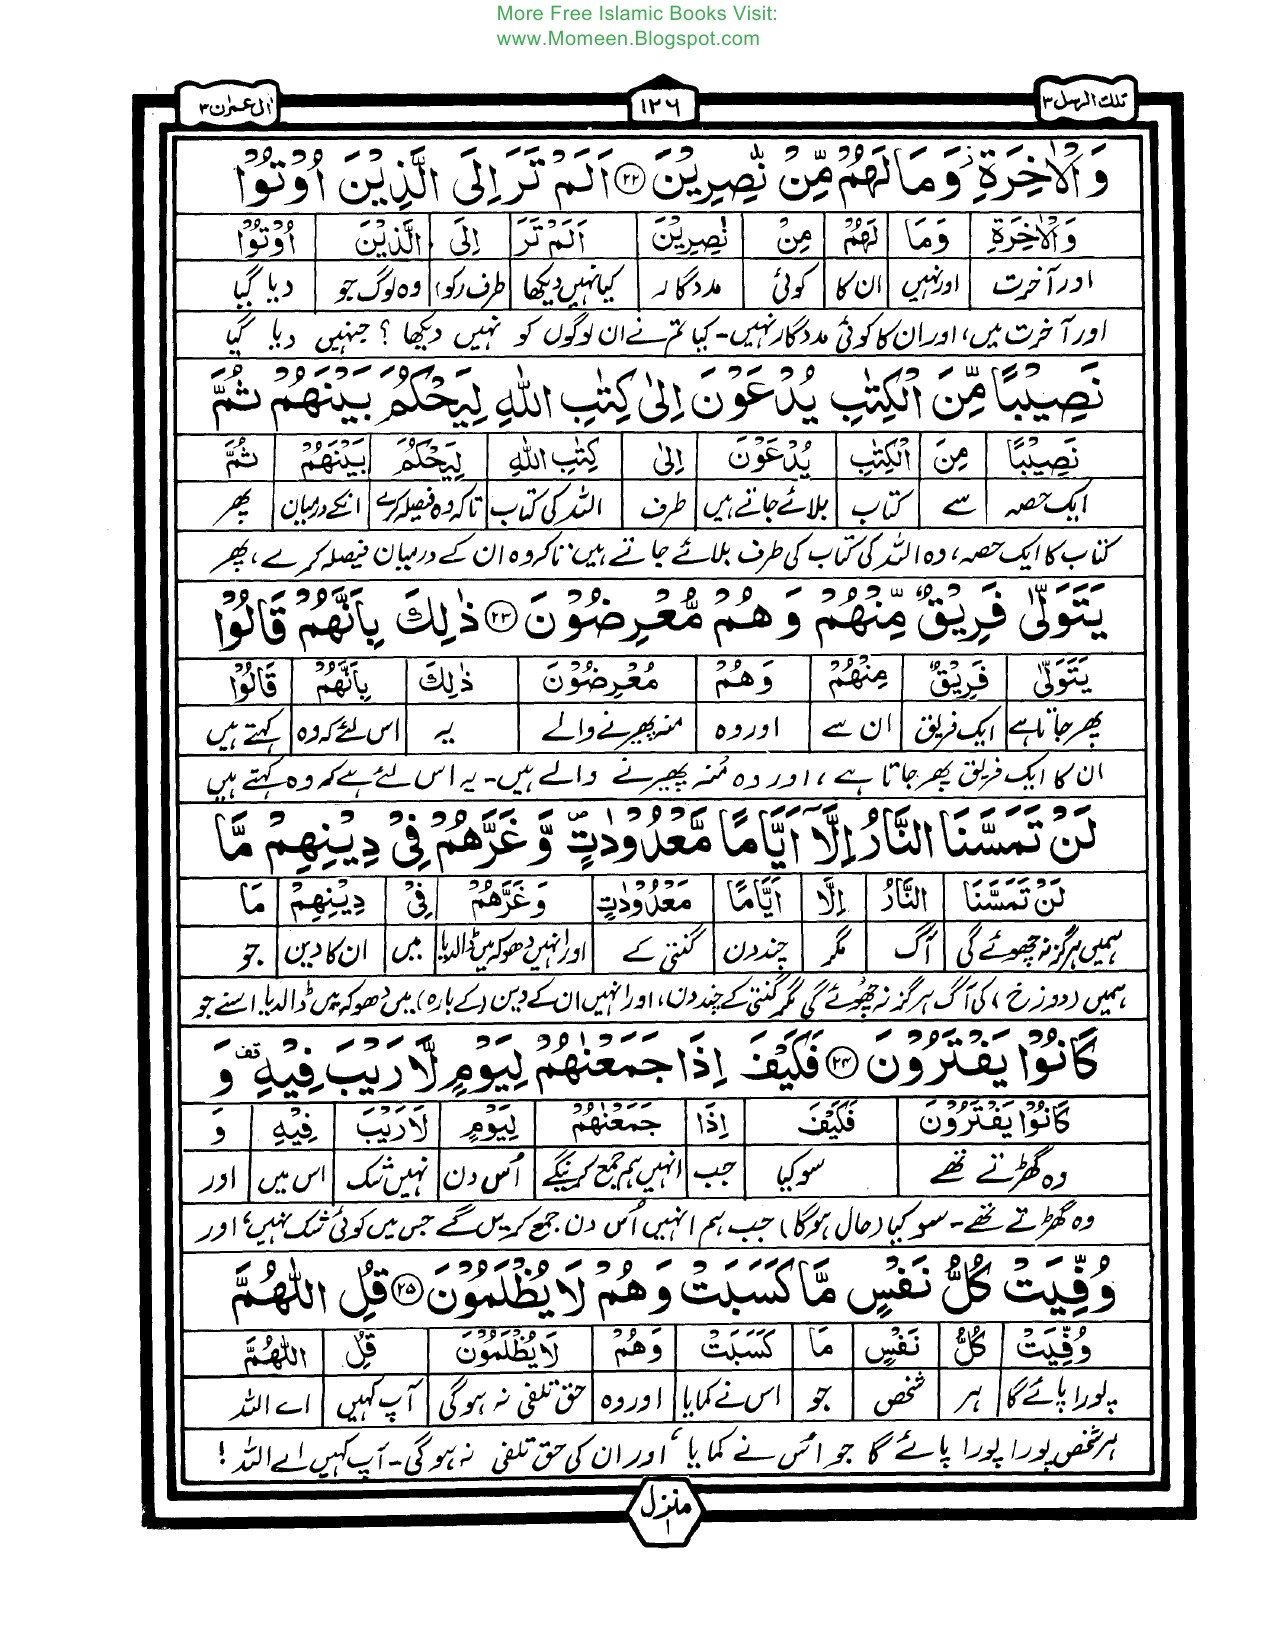 More Free Islamic Books Visit:
www.Momeen.Blogspot.com
تلك الرسل ٣ ١٢٦ اٰل عمرٰن ٣
وَالْاٰخِرَةِ ۫ وَمَا لَهُمْ مِّنْ نّٰصِرِيْنَ ۝٢٢ اَلَمْ تَرَ اِلَى الَّذِيْنَ اُوْتُوْا
وَالْاٰخِرَةِ وَمَا لَهُمْ مِنْ نٰصِرِيْنَ اَلَمْ تَرَ اِلَى الَّذِيْنَ اُوْتُوْا
اور آخرت اور نہیں ان کا کوئی مددگار کیا نہیں دیکھا طرف (کو) وہ لوگ جو دیا گیا
اور آخرت میں، اور ان کا کوئی مددگار نہیں۔ کیا تم نے ان لوگوں کو نہیں دیکھا؟ جنہیں دیا گیا
نَصِيْبًا مِّنَ الْكِتٰبِ يُدْعَوْنَ اِلٰى كِتٰبِ اللّٰهِ لِيَحْكُمَ بَيْنَهُمْ ثُمَّ
نَصِيْبًا مِنَ الْكِتٰبِ يُدْعَوْنَ اِلٰى كِتٰبِ اللّٰهِ لِيَحْكُمَ بَيْنَهُمْ ثُمَّ
ایک حصہ سے کتاب بلائے جاتے ہیں طرف اللہ کی کتاب تاکہ وہ فیصلہ کرے انکے درمیان پھر
کتاب کا ایک حصہ، وہ اللہ کی کتاب کی طرف بلائے جاتے ہیں تاکہ وہ ان کے درمیان فیصلہ کرے، پھر
يَتَوَلّٰى فَرِيْقٌ مِّنْهُمْ وَهُمْ مُّعْرِضُوْنَ ۝٢٣ ذٰلِكَ بِاَنَّهُمْ قَالُوْا
يَتَوَلّٰى فَرِيْقٌ مِنْهُمْ وَهُمْ مُعْرِضُوْنَ ذٰلِكَ بِاَنَّهُمْ قَالُوْا
پھر جاتا ہے ایک فریق ان سے اور وہ منہ پھیرنے والے یہ اس لئے کہ وہ کہتے ہیں
ان کا ایک فریق پھر جاتا ہے، اور وہ مُنہ پھیرنے والے ہیں۔ یہ اس لئے ہے کہ وہ کہتے ہیں
لَنْ تَمَسَّنَا النَّارُ اِلَّآ اَيَّامًا مَّعْدُوْدٰتٍ ۪ وَّغَرَّهُمْ فِيْ دِيْنِهِمْ مَّا
لَنْ تَمَسَّنَا النَّارُ اِلَّا اَيَّامًا مَعْدُوْدٰتٍ وَغَرَّهُمْ فِيْ دِيْنِهِمْ مَا
ہمیں ہرگز نہ چھوئے گی آگ مگر چند دن گنتی کے اور انہیں دھوکہ میں ڈالدیا میں ان کا دین جو
ہمیں (دوزخ) کی آگ ہرگز نہ چھوئے گی مگر گنتی کے چند دن، اور انہیں ان کے دین (کے بارہ) میں دھوکہ میں ڈالدیا اسنے جو
كَانُوْا يَفْتَرُوْنَ ۝٢٤ فَكَيْفَ اِذَا جَمَعْنٰهُمْ لِيَوْمٍ لَّا رَيْبَ فِيْهِ قف وَ
كَانُوْا يَفْتَرُوْنَ فَكَيْفَ اِذَا جَمَعْنٰهُمْ لِيَوْمٍ لَا رَيْبَ فِيْهِ وَ
وہ گھڑتے تھے سو کیا جب انہیں ہم جمع کرینگے اُس دن نہیں شک اس میں اور
وہ گھڑتے تھے۔ سو کیا (حال ہوگا) جب ہم انہیں اُس دن جمع کریں گے جس میں کوئی شک نہیں، اور
وُفِّيَتْ كُلُّ نَفْسٍ مَّا كَسَبَتْ وَهُمْ لَا يُظْلَمُوْنَ ۝٢٥ قُلِ اللّٰهُمَّ
وُفِّيَتْ كُلُّ نَفْسٍ مَا كَسَبَتْ وَهُمْ لَا يُظْلَمُوْنَ قُلِ اللّٰهُمَّ
پورا پائے گا ہر شخص جو اس نے کمایا اور وہ حق تلفی نہ ہوگی آپ کہیں اے اللہ
ہر شخص پورا پورا پائے گا جو اُس نے کمایا، اور ان کی حق تلفی نہ ہوگی۔ آپ کہیں اے اللہ!
منزل ١